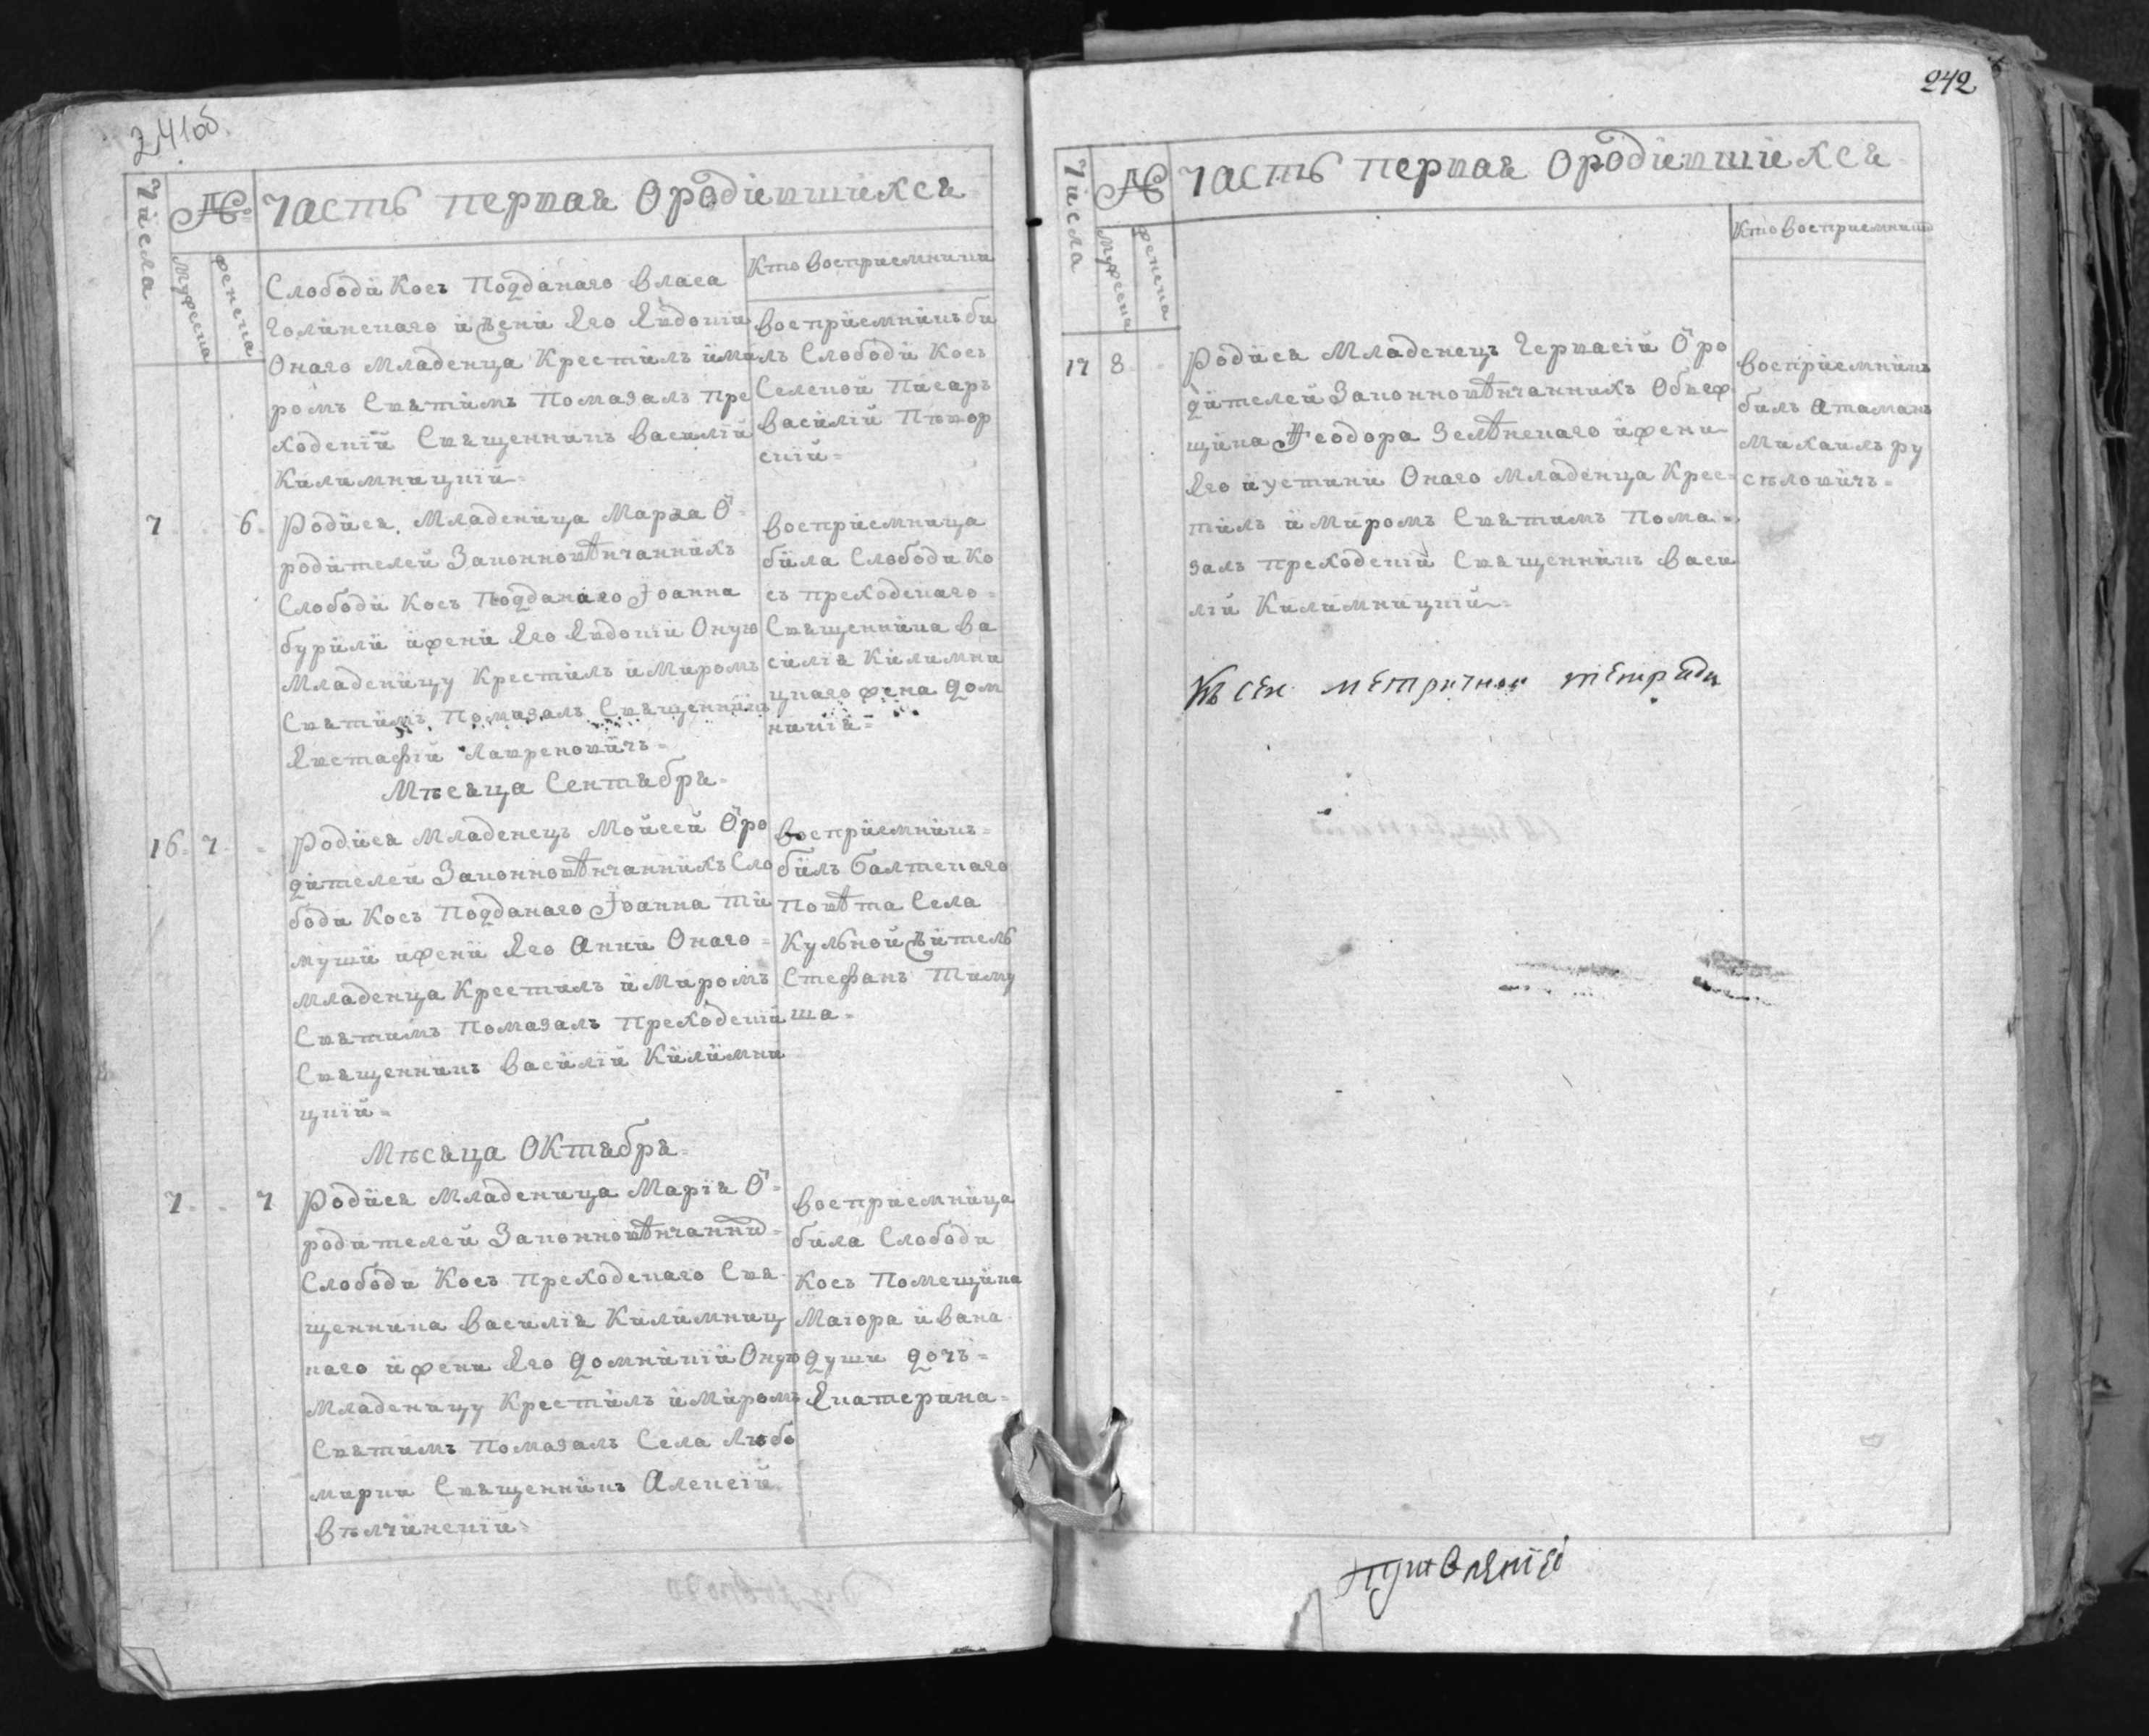 241об.
Числа
№
Часть первая о родившихся
мужеска
женска
Слободи Косъ Подданаго Власа
Голинскаго и жени Его Евдокии
Онаго Младенца Крестилъ и ми
ромъ Святимъ Помазалъ Пре
ходскїй Священникъ Василїй
Килимницкїй=
Кто восприемники
восприемникъ би
лъ Слободи Косъ
Селской Писаръ
василїй Пѣвор
скїй=
7
6.
Родися Младеница Марѳа Ѿ=
родителей Законновѣнчаннихъ
Слободи Косъ Подданаго Іоанна
бурили и жени Его Евдокїи Оную
Младеницу Крестилъ и Миромъ
Святимъ Помазалъ Священникъ
Евстафїй Лавреновичъ=
восприемница
била Слободи Ко
съ преходскаго=
Священника Ва
силїя Килимни
цкаго жена Дом
никїя=
Мѣсяца Сентября=
16.
7
Родися Младенецъ Мойсей Ѿ ро
дителей Законновѣнчаннихъ Сло
боди Косъ Подданаго Іоанна Ти
муши и жени Его Анни Онаго=
младенца Крестилъ и Миромъ
Святимъ Помазалъ Преходскїй
Священникъ Василїй Килимни
цкїй=
восприемникъ=
билъ Балтскаго
Повѣта Села
Кульной житель
Стефанъ Тиму
ша=
Мѣсяца Октября=
7
7
Родися Младеница Марїя Ѿ=
родителей Законновѣнчанних=
Слободи Косъ Преходскаго Свя-
щенника Василїя Килимниц
каго и жени Его Домникїи Оную
Младеницу Крестилъ и Миромъ
Святимъ Помазалъ Села Любо
мирки Священникъ Алексїй
Вѣлчинскїй=
восприемница
била Слободи
Косъ Помещика
Маїора Ивана
Души дочъ=
Екатерина=
242
Числа
№
Часть первая о родившихся
мужеска
женска
Кто восприемники
17
8
Родися Младенецъ Гервасїй Ѿ ро
дителей Законновѣнчаннихъ Объеж
щика Ѳеодора Зелѣнскаго и жени
Его Иустини Онаго Младенца Крес=
тилъ и Миромъ Святимъ Пома=
залъ преходскїй Священникъ Васи
лїй Килимницкїй=
восприемникъ
билъ Атаманъ
Михаилъ ру
сѣловичъ=
Къ сей метричной тетради